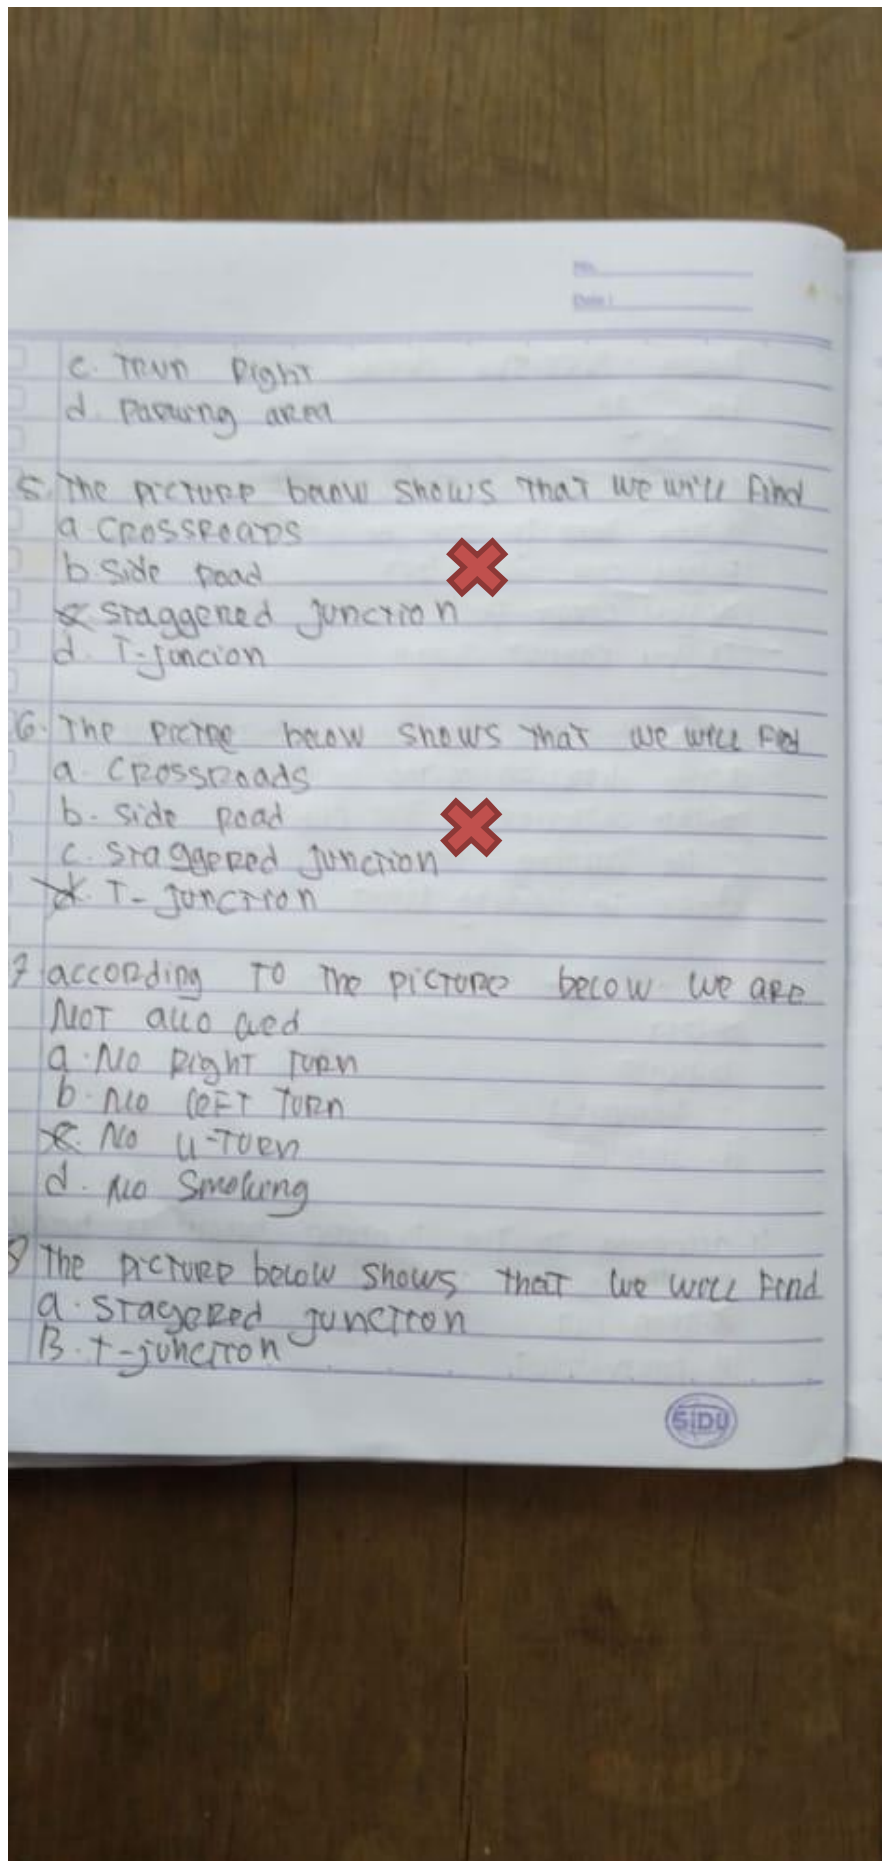 No.
Date :
c. Trun Right
d. Parking area
5. The picture banow shows That we will Find
a. CROSSROADS
b. Side Road
c. Staggered junction
d. T-juncion
6. The pictre below shows That we will Find
a. CROSSROADS
b. side Road
c. staggered junction
d. T-junction
7 according To The picture below we are
NOT allo wed
a. No Right Turn
b. No lEFT Turn
c. No U-Turn
d. No Smoking
8 The picture below shows that we will Find
a. Stagered junction
B. t-junction
SiDU